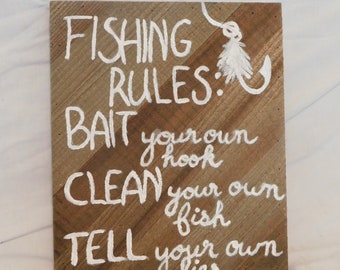 FISHING
RULES:
BAIT your own
hook
CLEAN your own
fish
TELL your own
lies